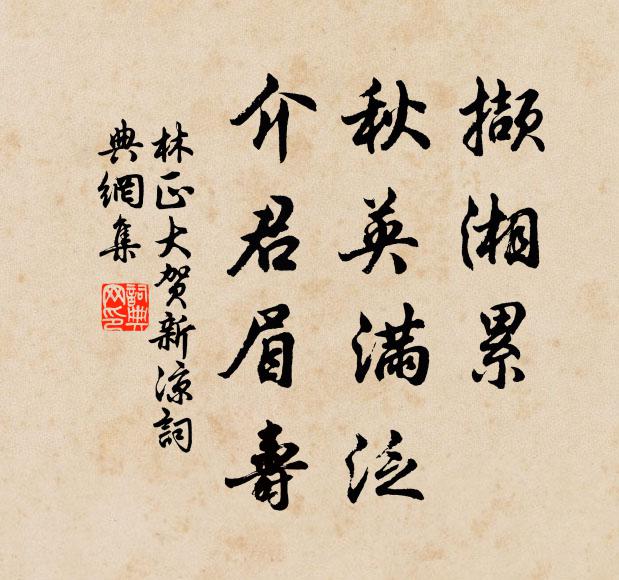 撷湘累
秋英满泛
介君眉壽
林正大贺新凉詞
典網集
詞典网印